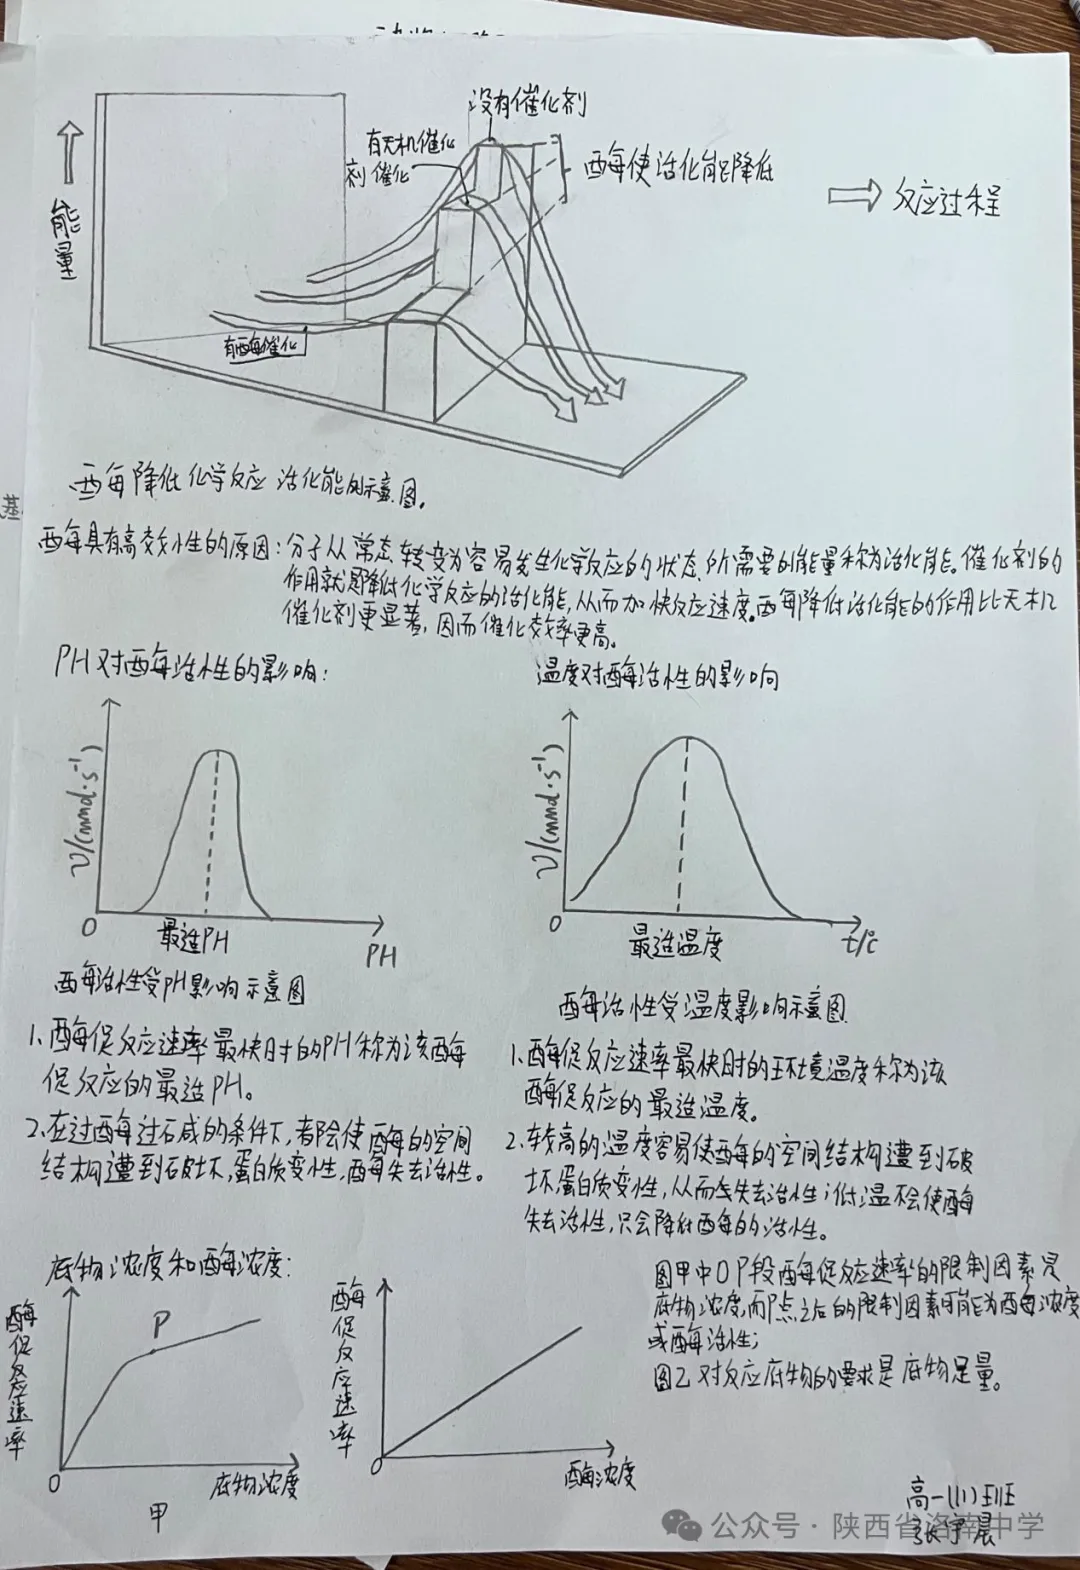 没有催化剂
有无机催化
剂催化
酶使活化能降低
反应过程
能量
有酶催化
酶降低化学反应活化能的示意图。
酶具有高效性的原因：分子从常态转变为容易发生化学反应的状态所需要的能量称为活化能。催化剂的
作用就是降低化学反应的活化能，从而加快反应速度。酶降低活化能的作用比无机
催化剂更显著，因而催化效率更高。
PH对酶活性的影响：
温度对酶活性的影响
v/(mmol·s⁻¹)
0
最适PH
PH
v/(mmol·s⁻¹)
0
最适温度
t/℃
酶活性受PH影响示意图
酶活性受温度影响示意图
1、酶促反应速率最快时的PH称为该酶
促反应的最适PH。
2、在过酶过碱的条件下，都会使酶的空间
结构遭到破坏，蛋白质变性，酶失去活性。
1、酶促反应速率最快时的环境温度称为该
酶促反应的最适温度。
2、较高的温度容易使酶的空间结构遭到破
坏，蛋白质变性，从而失去活性；低温不会使酶
失去活性，只会降低酶的活性。
底物浓度和酶浓度：
酶促反应速率
P
0
底物浓度
甲
酶促反应速率
0
酶浓度
图甲中OP段酶促反应速率的限制因素是
底物浓度，而P点之后的限制因素可能为酶浓度
或酶活性；
图乙对反应底物的要求是底物足量。
高一(1)班
张宇晨
公众号·陕西省洛南中学